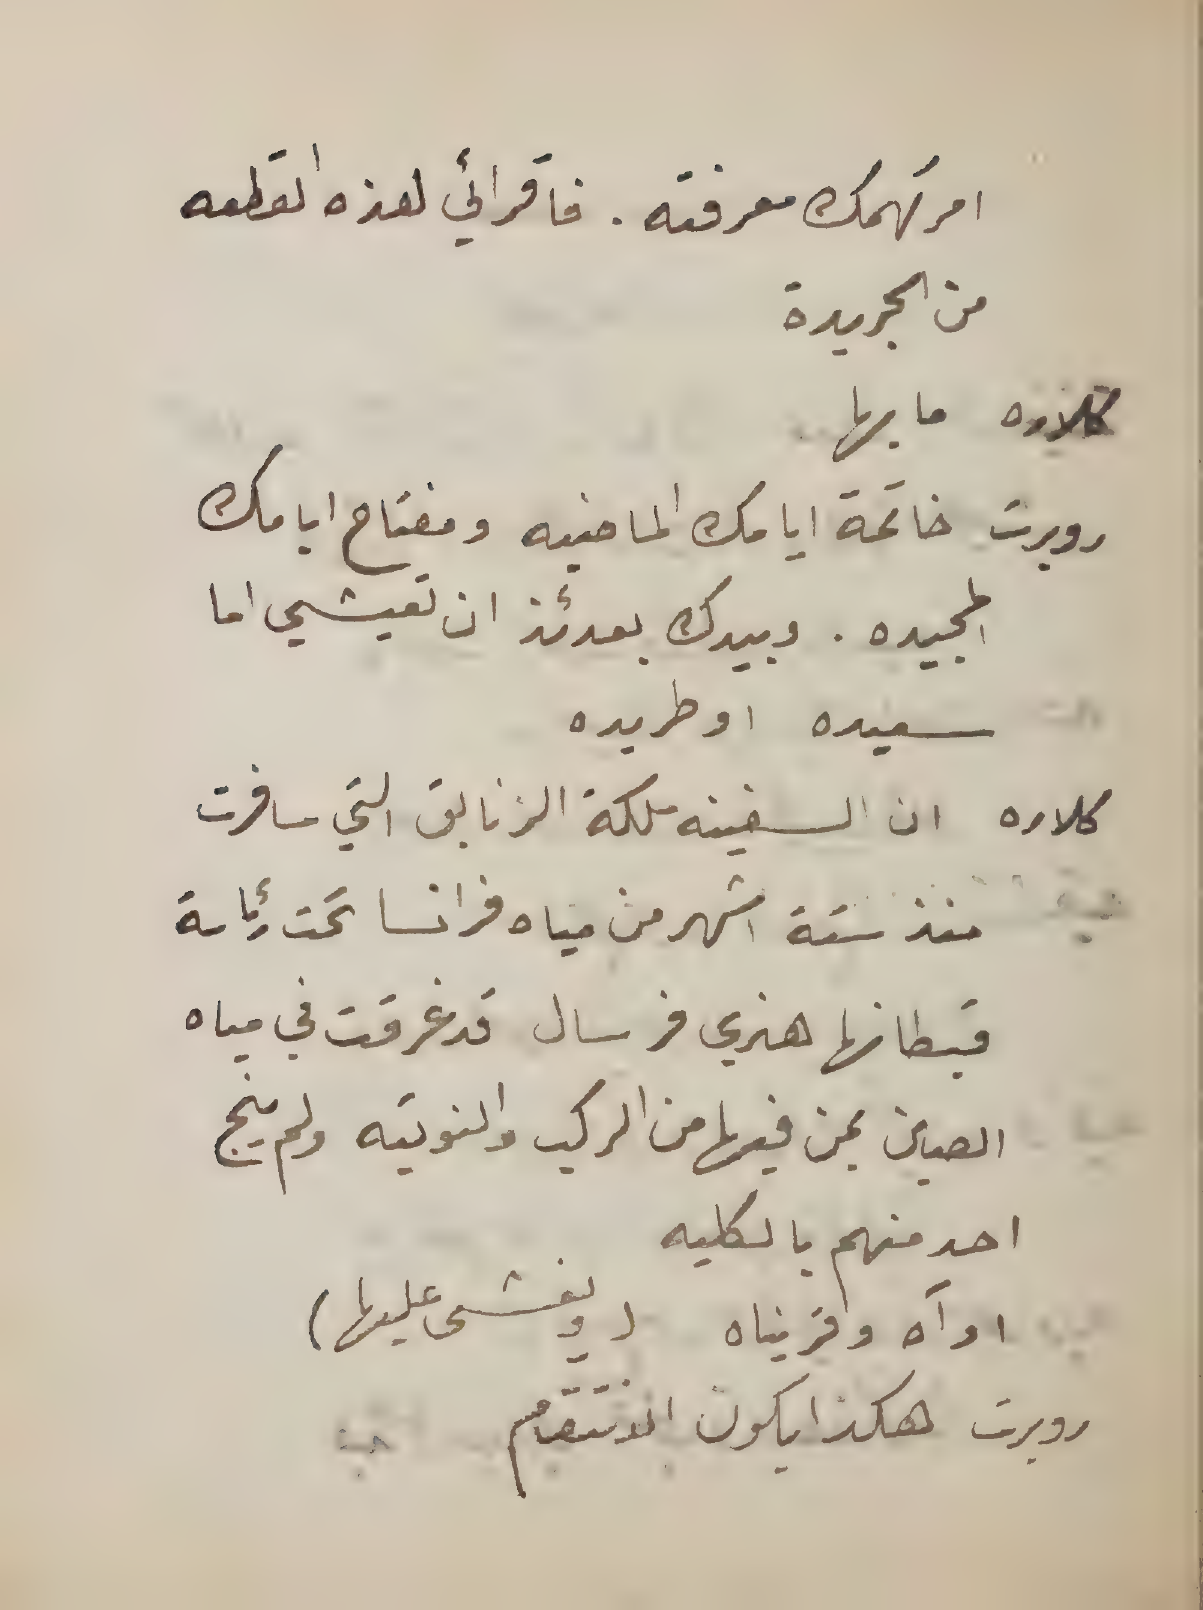 امر يهمك معرفته . فاقرائي لهذه القطعه
من الجريدة
كلاره ما بها
روبرت خاتمة ايامك الماضيه ومفتاح ايامك
المجيده . وبيدك بعدئذ ان تعيشي اما
سعيده او طريده
كلاره ان السفينه ملكة الزنابق التي سافرت
منذ ستة اشهر من مياه فرانسا تحت رئاسة
قبطانها هنري فرسال قد غرقت في مياه
الصين بمن فيها من الركب والنوتيه ولم ينج
احد منهم بالكليه
اواه واقريناه (ويغشى عليها)
روبرت هكذا يكون الانتقام